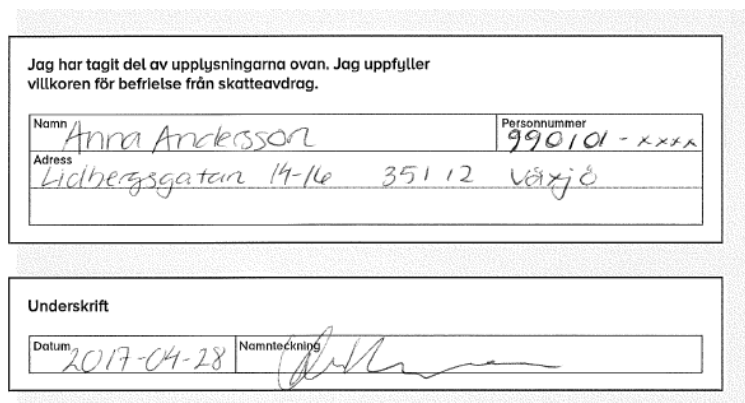 Jag har tagit del av upplysningarna ovan. Jag uppfyller
villkoren för befrielse från skatteavdrag.
Namn Anna Andersson Personnummer 990101-xxxx
Adress
Lidbergsgatan 14-16 351 12 Växjö
Underskrift
Datum 2017-04-28 Namnteckning